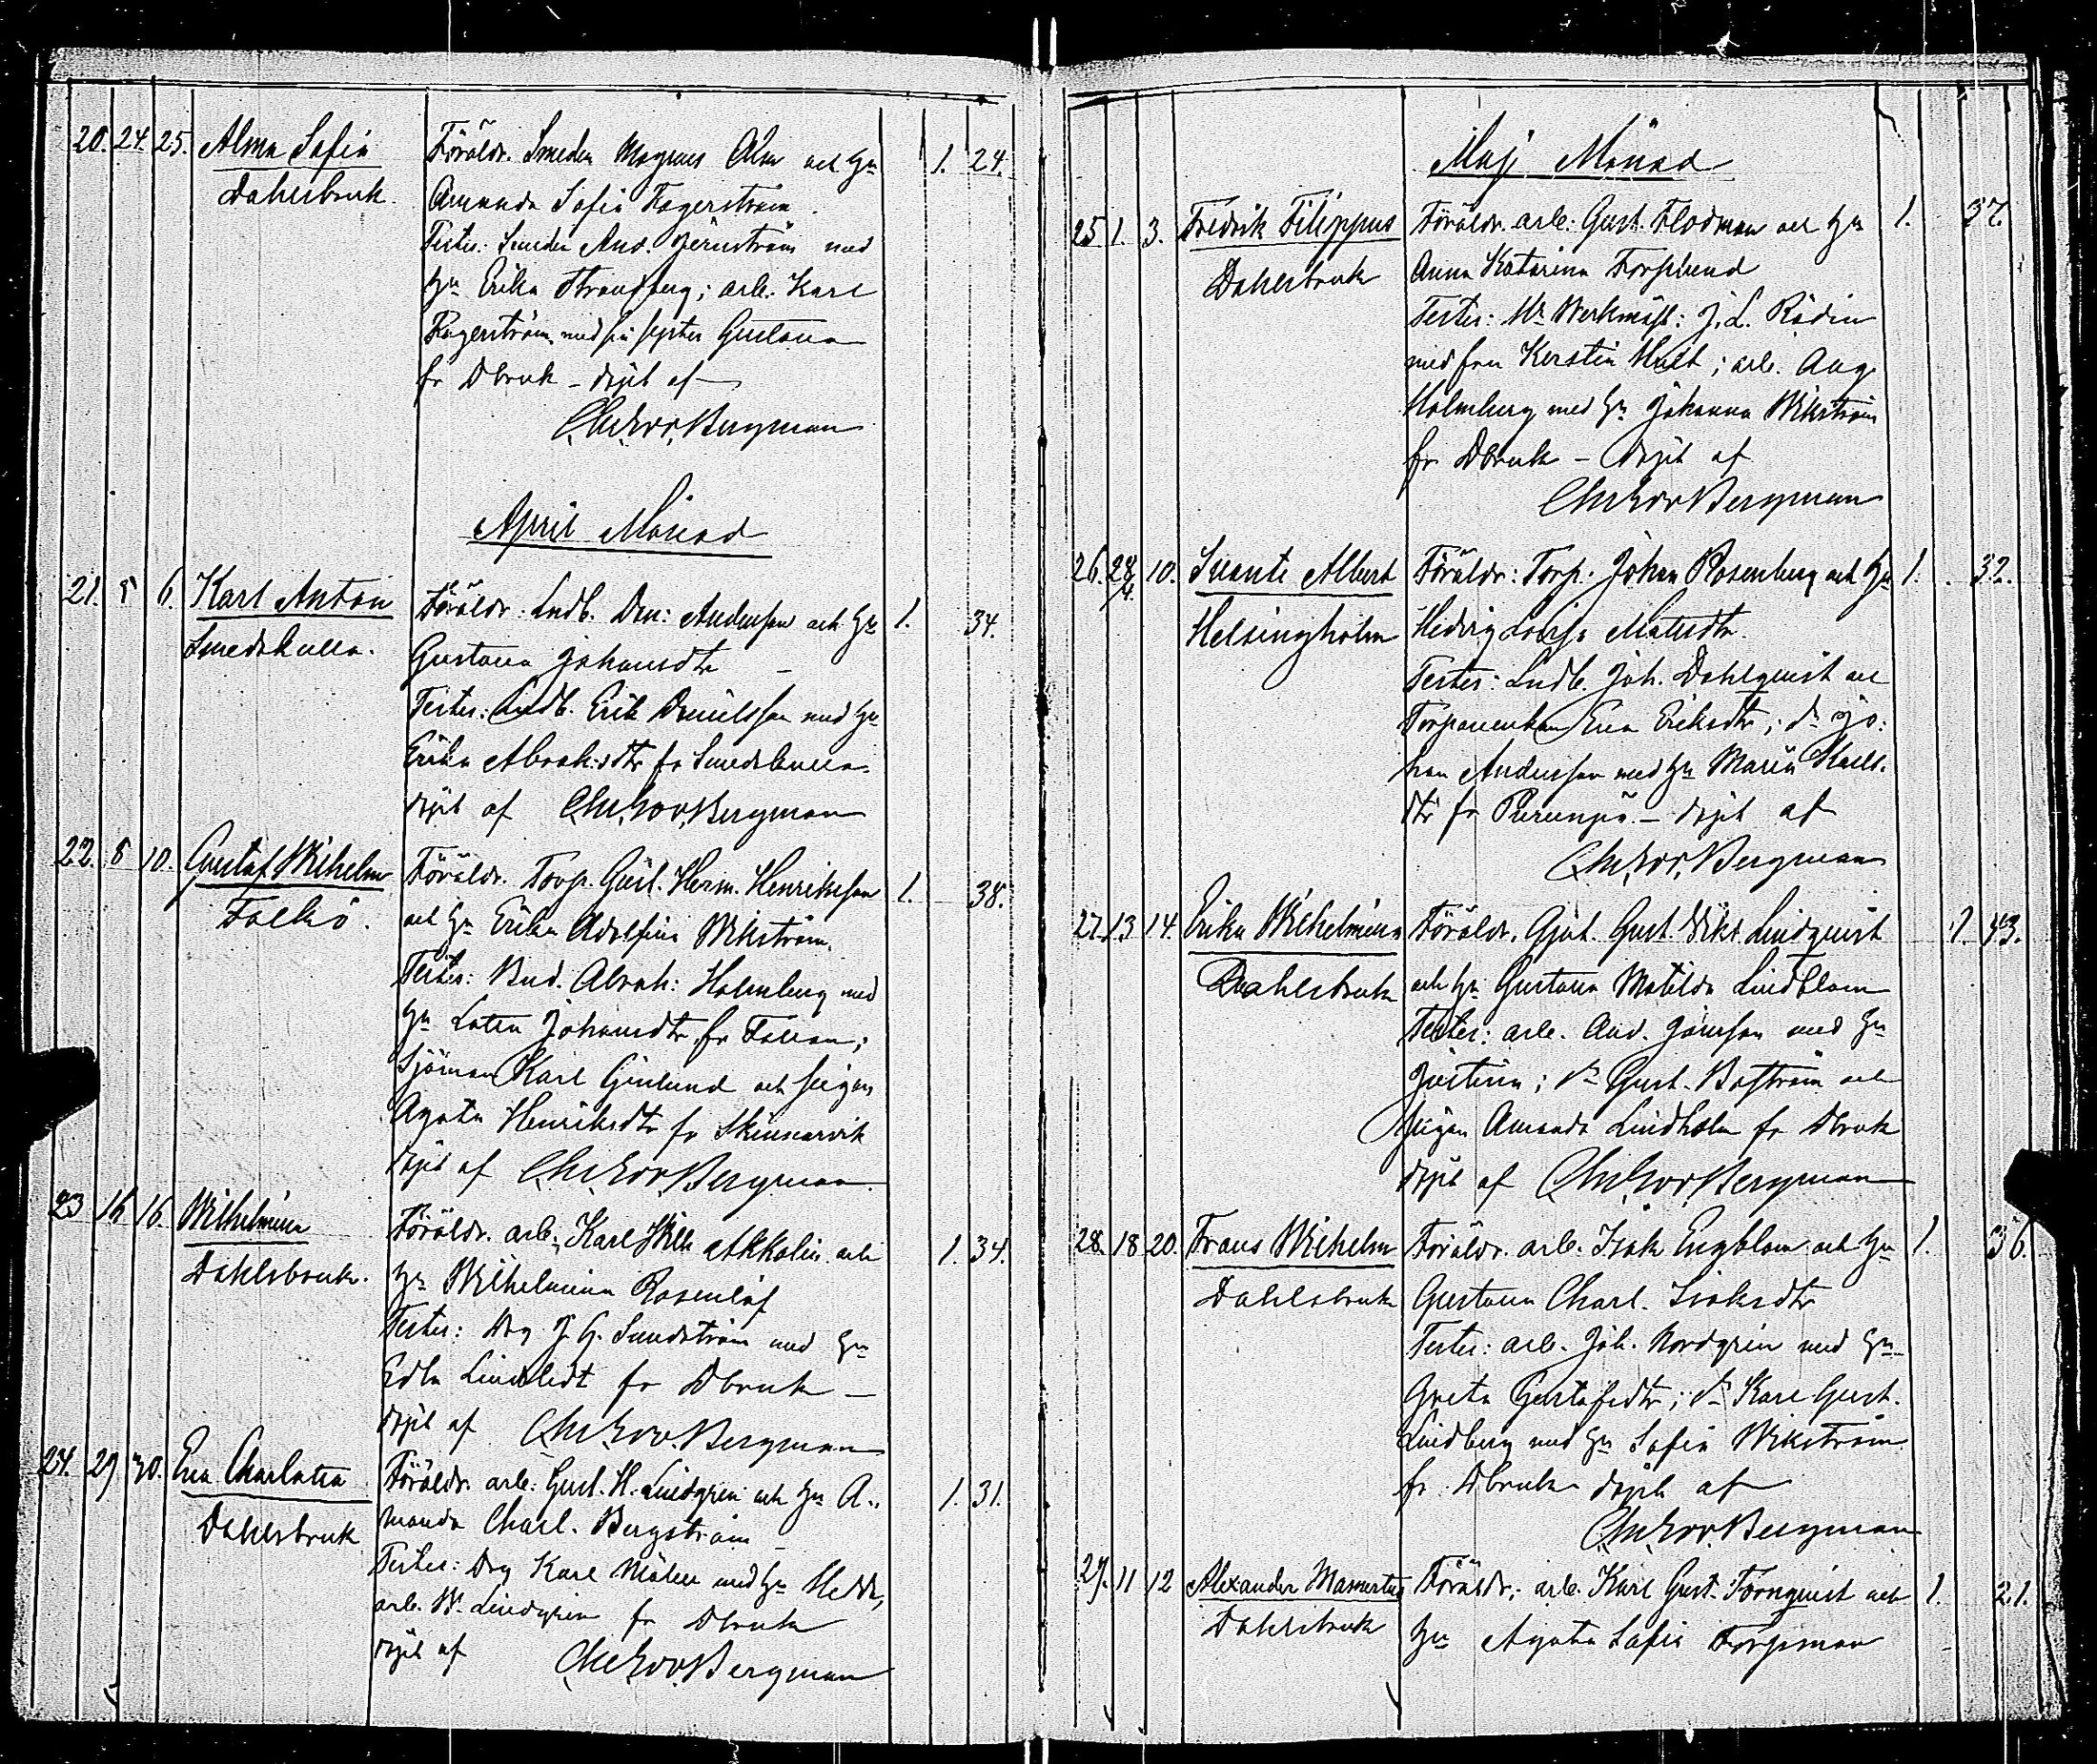 20. 24. 25. Alma Sofia Föräldr. Smeden Magnus Alm och Hu 1. 24.
Dahlsbruk. Amanda Sofia Fagerström.
Testes: Smeden And. Jernström med
Hu Erika Strandberg; arb. Karl
Fagerström med sin syster Gustava
fr Dbruk – döpt af
Bergman
April Månad
21. 5 6. Karl Anton Föräldr. Lndb. Dan: Andersson och Hu 1. 34.
Smedskulla. Gustava Johansdtr –
Testes: Lndb. Erik Danielsson med Hu
Erika Abrah:dtr fr Smedskulla.
döpt af Bergman
22. 8 10. Gustaf Wilhelm Föräldr. Torp. Gust. Herm. Henriksson 1. 38.
Falkö. och Hu Erika Adolfina Wikström.
Testes: Bnd. Abrah: Holmberg med
Hu Lovisa Johansdtr fr
Sjöman Karl Grönlund och pigan
Agata Henriksdtr fr Skinnarvik
döpt af Bergman
23 16 16. Wilhelmina Föräldr. arb. Karl Wilh Ahlholm och 1. 34.
Dahlsbruk. Hu Wilhelmina Rosenlöf
Testes: Drg J. G. Sundström med Hu
Edla Lindstedt fr Dbruk –
döpt af Bergman
24. 29 30. Eva Charlotta Föräldr. arb: Gust. H. Lindgren och Hu A- 1. 31.
Dahlsbruk manda Charl. Bergström –
Testes: Drg Karl Malm med Hu Hedda,
arb. W. Lindgren fr Dbruk
döpt af Bergman
Maj Månad
25 1. 3. Fredrik Filippus Föräldr. arb: Gust. Flodman och Hu 1. 37.
Dahlsbruk Anna Katarina Forsslund
Testes: Hr Werkmäst: J. L. Rödin
med fru Kerstin Hult; arb. Aug.
Holmberg med Hu Johanna Wikström
fr Dbruk – döpt af
Bergman
26. 28/4. 10. Svante Albert Föräldr: Torp. Johan Rosenberg och Hu 1. 32.
Helsingholm Hedvig Lovisa Matsdtr.
Testes: Lndb. Joh. Dahlqvist och
Torparenkan Eva Eriksdtr; do Jo-
han Andersson med Hu Maria Karls-
dtr fr Purunpä – döpt af
Bergman
27. 13 14. Erika Wilhelmina Föräldr. Gjut. Gust. Vikt. Lindqvist 1. 43.
Dahlsbruk och Hu Gustava Matilda Lindblom
Testes: arb. And. Jönsson med Hu
Justina; do Gust. Boström och
pigan Amanda Lindholm fr Dbruk
döpt af Bergman
28. 18 20. Frans Wilhelm Föräldr. arb. Isak Engblom och Hu 1. 36.
Dahlsbruk Gustava Charl. Isaksdtr
Testes: arb. Joh. Nordgren med Hu
Greta Gustafsdtr; do Karl Gust.
Lindberg med Hu Sofia Wikström
fr Dbruk döpt af
Bergman
29. 11 12 Alexander Mamertus Föräldr: arb. Karl Gust. Törnqvist och 1. 21.
Dahlsbruk Hu Agata Sofia Forsman